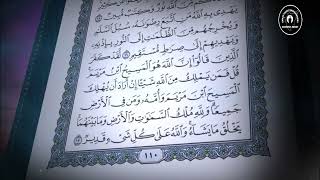 يَهْدِي بِهِ ٱللَّهُ مَنِ ٱتَّبَعَ رِضْوَٰنَهُۥ سُبُلَ ٱلسَّلَٰمِ
وَيُخْرِجُهُم مِّنَ ٱلظُّلُمَٰتِ إِلَى ٱلنُّورِ بِإِذْنِهِۦ
وَيَهْدِيهِمْ إِلَىٰ صِرَٰطٍ مُّسْتَقِيمٍ ١٦ لَّقَدْ كَفَرَ
ٱلَّذِينَ قَالُوٓا۟ إِنَّ ٱللَّهَ هُوَ ٱلْمَسِيحُ ٱبْنُ مَرْيَمَ
قُلْ فَمَن يَمْلِكُ مِنَ ٱللَّهِ شَيْـًٔا إِنْ أَرَادَ أَن يُهْلِكَ
ٱلْمَسِيحَ ٱبْنَ مَرْيَمَ وَأُمَّهُۥ وَمَن فِي ٱلْأَرْضِ
جَمِيعًا وَلِلَّهِ مُلْكُ ٱلسَّمَٰوَٰتِ وَٱلْأَرْضِ وَمَا بَيْنَهُمَا
يَخْلُقُ مَا يَشَآءُ وَٱللَّهُ عَلَىٰ كُلِّ شَىْءٍ قَدِيرٌ ١٧
١١٠